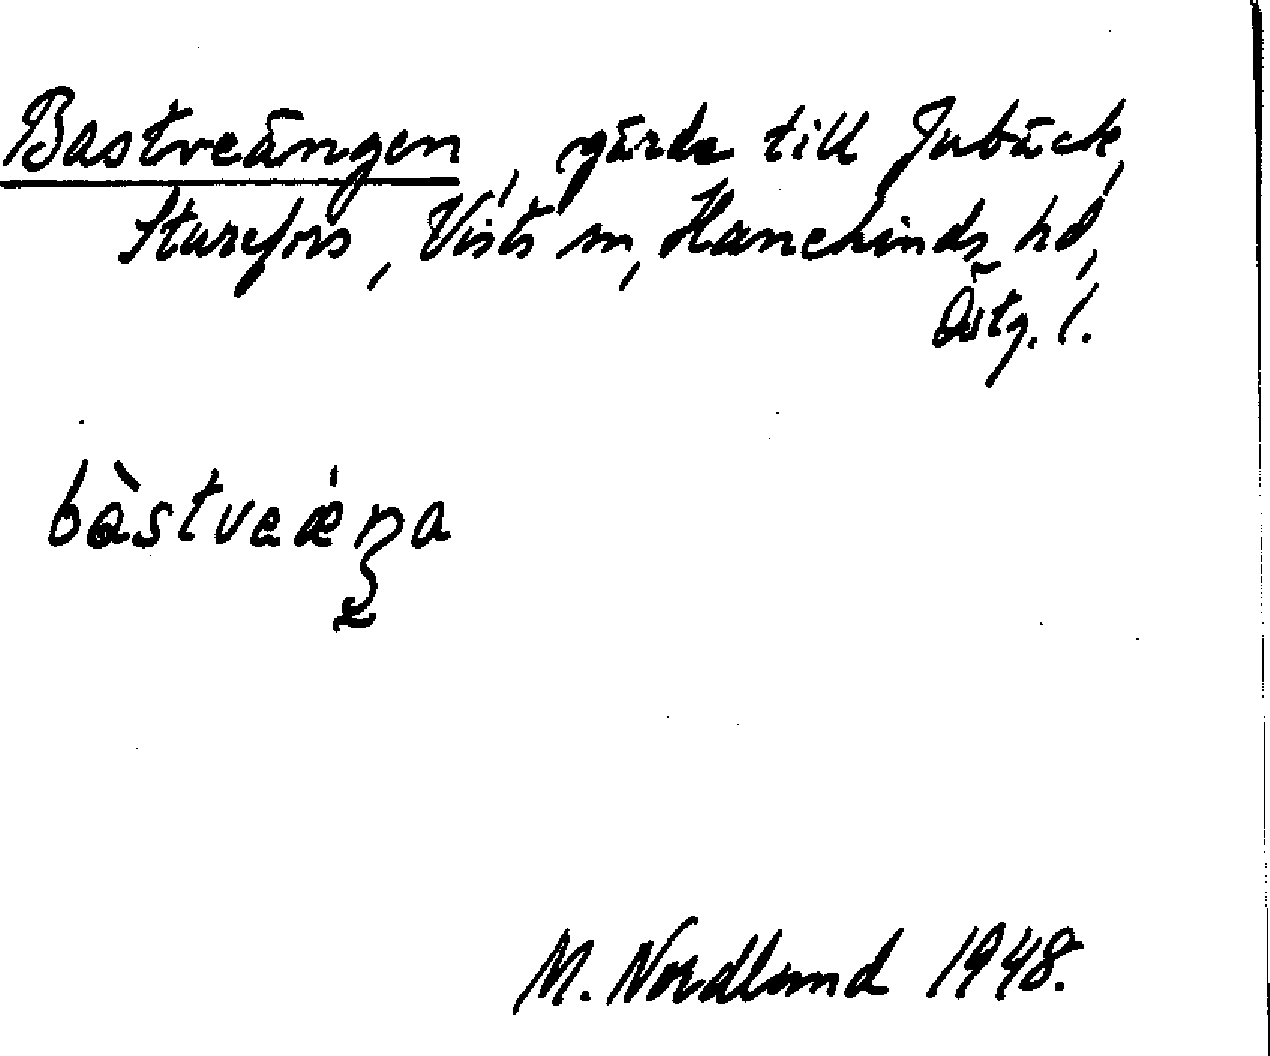 Bastveängen, gärde till Jubäck,
Sturefors, Vists sn, Hanekinds hd,
Östg. l.
bàstveæ̍ŋa
M. Nordlund 1948.